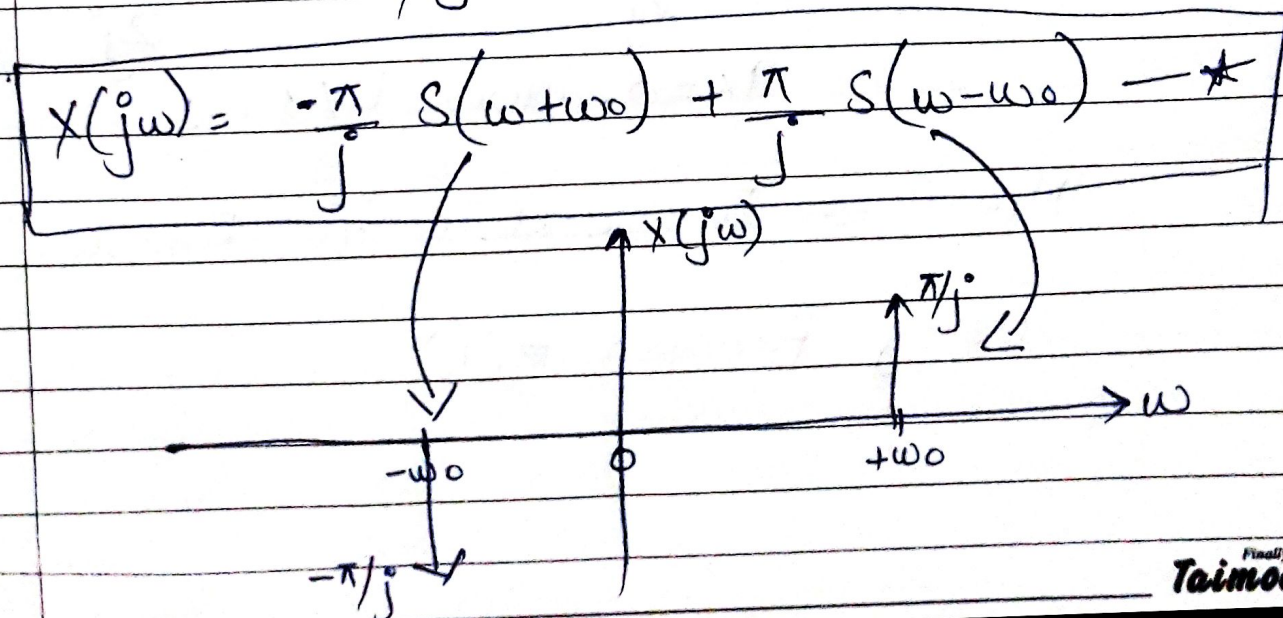 X(jω) = -π/j δ(ω+ω0) + π/j δ(ω-ω0) — *
X(jω)
π/j
ω
-ω0 0 +ω0
-π/j